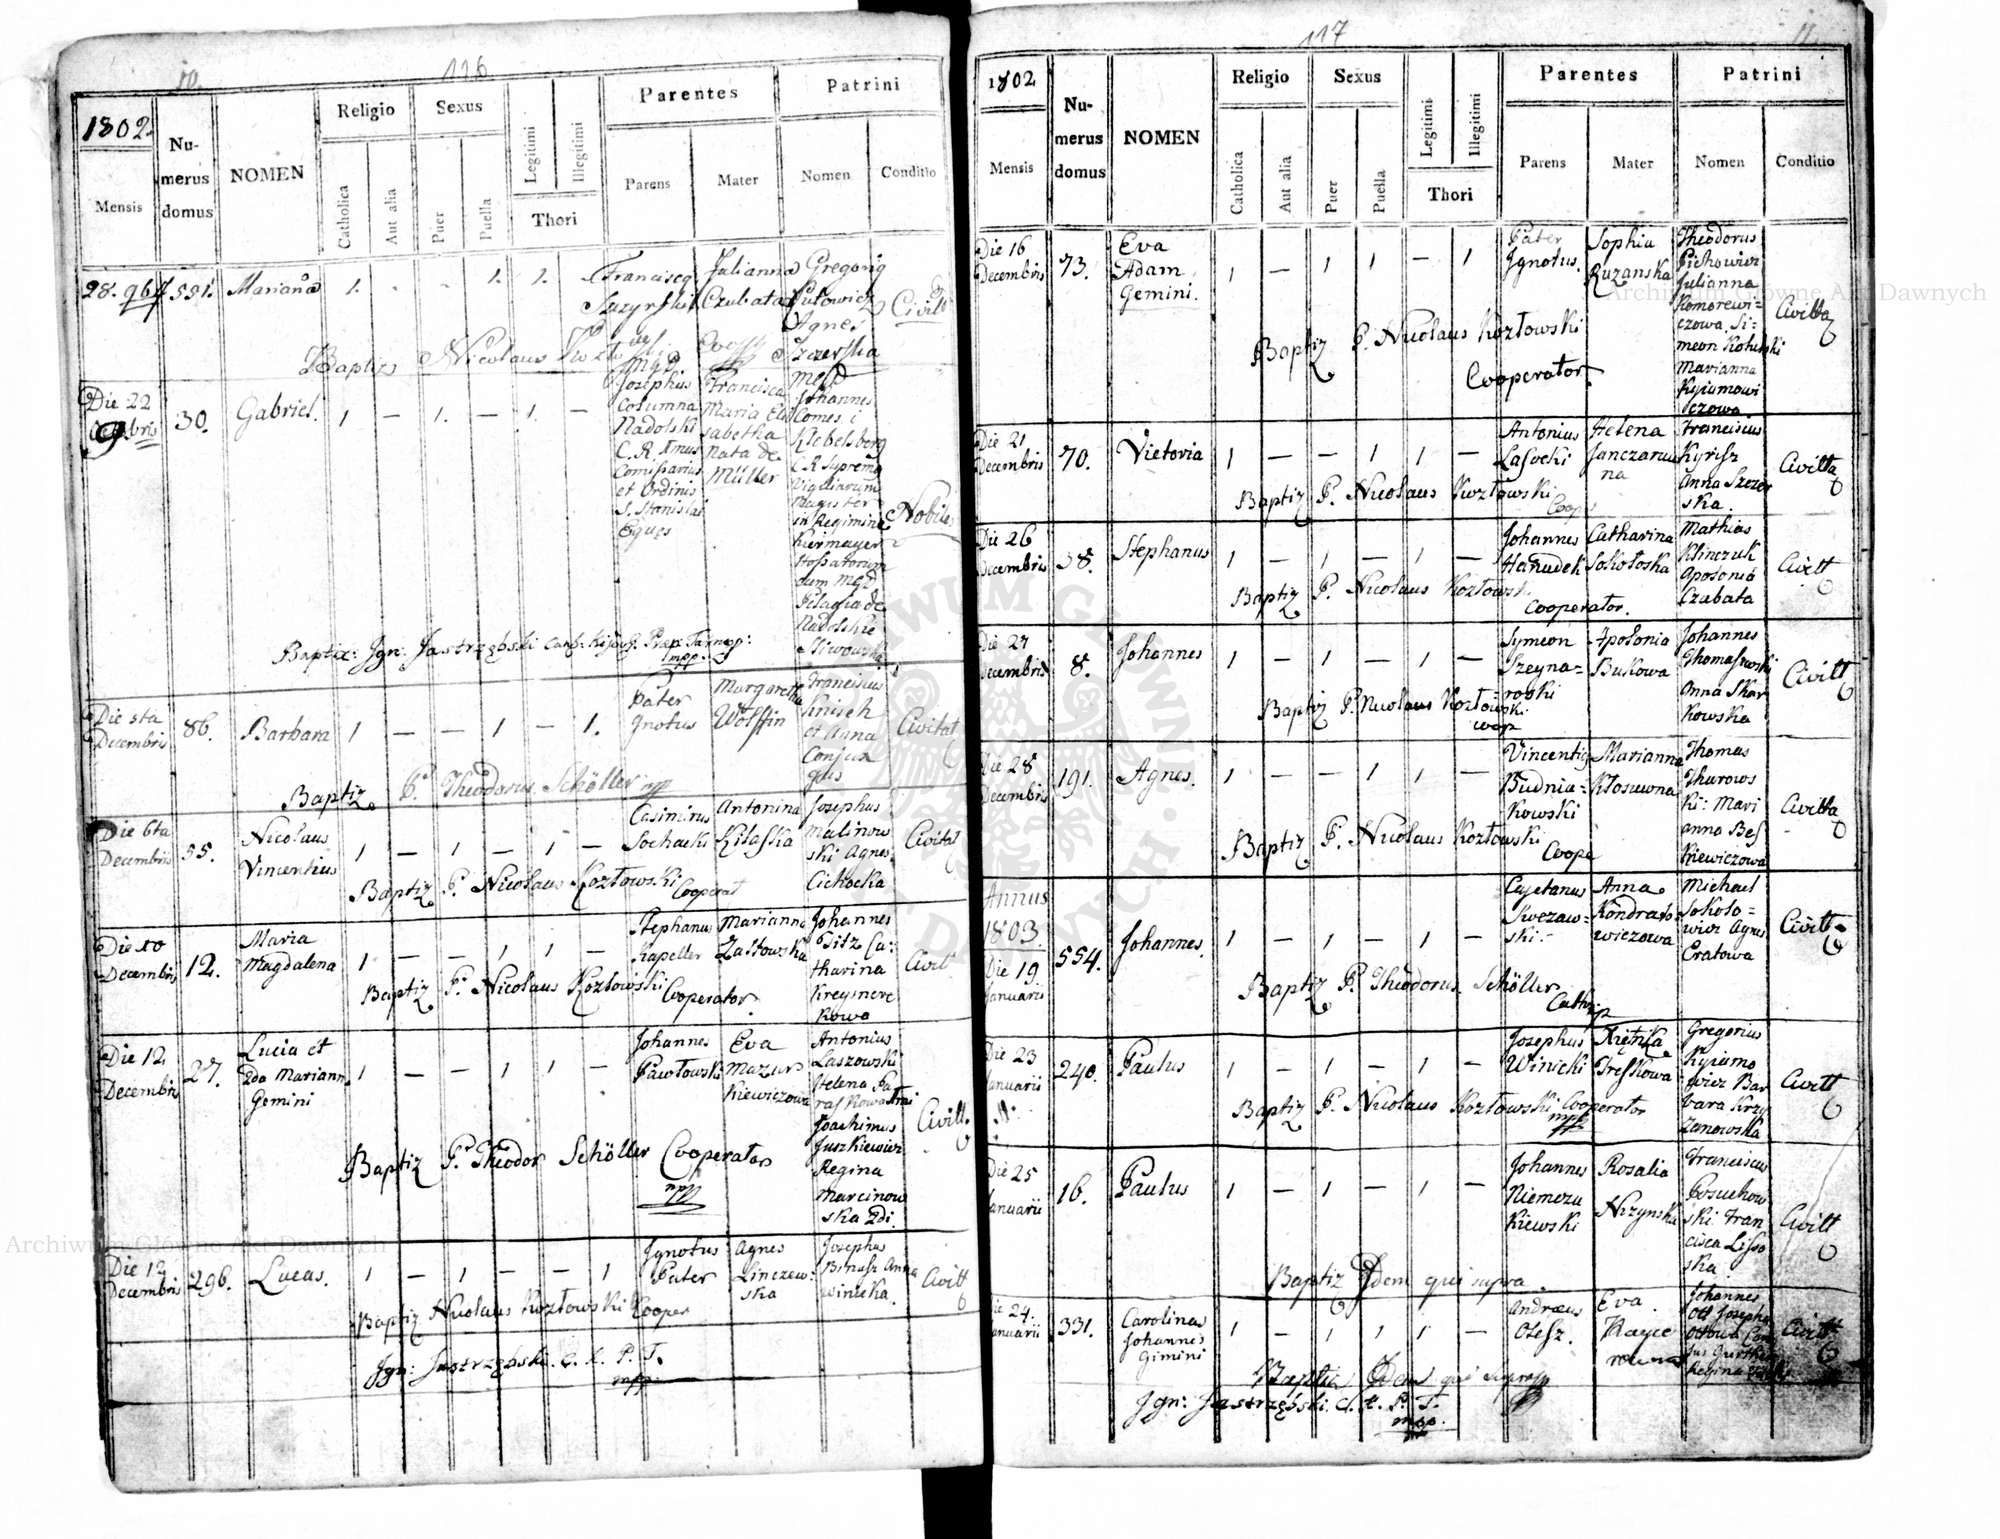 10.
116
1802.
Mensis
Numerus domus
NOMEN
Religio
Catholica
Aut alia
Sexus
Puer
Puella
Legitimi
Illegitimi
Thori
Parentes
Parens
Mater
Patrini
Nomen
Conditio
28. 9br 551. Marianna 1. 1. 1.
Julianna
Czubata
Gregorig
Agnes
Szczerska
Civilt
Baptiz Nicolaus
Die 22
Octobris
30.
Gabriel.
1 — 1. — 1. —
Josephus
Columna
Nadolski
C. R.
Comissarius
et Ordinis
S. Stanislai
Eques
Francisca
Maria Eli
sabetha
nata de
Müller
Johannes
Comes i
Klebelsberg
C R Suprema
Vigiliarum
Magister
in Regimine
Kiermayer
dum Mgd
Pelagia de
Nadolskie
Nobiles
Baptiz: Ign: Jastrzębski
mpp.
Die 5ta
Decembris
86.
Barbara
1 — — 1 — 1.
Pater
Ignotus
Margaretha
Wolffin
Franciscus
Jinisch
et Anna
Conjux
Civitat
Baptiz P. Theodorus Schöller mpp
Die 6ta
Decembris
55.
Nicolaus
Vincentius
1 — 1 — 1 —
Casimirus
Sochacki
Antonina
Kilaska
Josephus
Malinow
ski Agnes
Cichocka
Civitat
Baptiz P. Nicolaus Kozłowski
Cooperat
Die 10
Decembris
12.
Maria
Magdalena
1 — — 1 1 —
Stephanus
Kapeller
Marianna
Zastowska
Johannes
Ditz Ca:
tharina
Kreysnere
kowa
Civilt
Baptiz P. Nicolaus Kozłowski
Cooperator
Die 12
Decembris
27.
Lucia et
2da Mariann
Gemini
1 — — 1 1 —
Johannes
Pawłowski
Eva
Mazur
kiewiczowa
Antonius
Laszowski
Helena Pa
Joachimus
Juszkiewicz
Regina
Marcinow
ska 2di.
Civilt.
Baptiz P. Theodor Schöller Cooperator
mpp
Die 12
Decembris
296.
Lucas.
1 — 1 — — 1
Ignotus
Pater
Agnes
Linczew:
ska
Josephus
Anna
winicka.
Civilt
Baptiz Nicolaus Kozłowski Cooper
Ign: Jastrzębski. C. K. P. T.
mpp:
117
11.
1802
Mensis
Numerus domus
NOMEN
Religio
Catholica
Aut alia
Sexus
Puer
Puella
Legitimi
Illegitimi
Thori
Parentes
Parens
Mater
Patrini
Nomen
Conditio
Die 16
Decembris
73.
Eva
Adam
Gemini.
1 — 1 1 — 1
Pater
Ignotus.
Sophia
Ruzanska
Theodorus
Pichowicz
Julianna
Komorewi=
czowa. Si=
meon
Marianna
Kyiumowi
czowa.
Civilta
Baptiz P. Nicolaus Kozłowski
Cooperator
Die 21
Decembris
70.
Victoria
1 — — 1 1 —
Antonius
Lasocki
Helena
Janczarow
na
Franciscus
Kyrysz
Anna Szczer
ska.
Civilta
Baptiz P. Nicolaus Kozłowski
Coop
Die 26
Decembris
38.
Stephanus
1 — 1 — 1 —
Johannes
Hanudek
Catharina
Sokołoska
Mathias
Klinczuk
Apolonia
Czubata
Civilt
Baptiz P. Nicolaus Kozłowski
Cooperator.
Die 27
Decembris
8.
Johannes
1 — 1 — 1 —
Symeon
Szeyna=
roski
Apolonia
Bukowa
Johannes
Thomaszewski
Anna Skar
kowska
Civilt
Baptiz P. Nicolaus Kozłowski
coop
Die 28
Decembris
191.
Agnes.
1 — — 1 1 —
Vincentig
Budnia=
kowski
Marianna
Kłosiewna
Thomas
Thurows
ki: Mari
anna Bes
kiewiczowa
Civilta
Baptiz P. Nicolaus Kozłowski
Coope
Annus
1803.
Die 19
Januarii
554.
Johannes.
1 — 1 — 1 —
Cajetanus
Swezaw=
ski.
Anna
Kondrato
wiczowa
Michael
Sokoło=
wicz Agnes
Cratowa
Civilt.
Baptiz P. Theodorus Schöller
Die 23
Januarii
240.
Paulus
1 — 1 — 1 —
Josephus
Winicki
Treskowa
Gregorius
Kyiumo
wicz Bar
bara Krzy
zanowska
Civilt
Baptiz P. Nicolaus Kozłowski Cooperator
mpp
Die 25
Januarii
16.
Paulus
1 — 1 — 1 —
Johannes
Niemczu
kiewski
Rosalia
Nizynska
Franciscus
Gosuchow
ski Fran
cisca Lisso
ska.
Civilt
Baptiz Idem qui supra.
Die 24.
Januarii
331.
Carolina
Johannes
Gimini
1 — 1 1 1 —
Andreas
Olesz.
Eva.
Johannes
Ott Josepha
Regina
Civilt
Baptiz Idem qui supra
Ign: Jastrzębski. C. K. P. T.
mpp.
Archiwum Główne Akt Dawnych
Archiwum Główne Akt Dawnych
ARCHIWUM GŁÓWNE AKT DAWNYCH